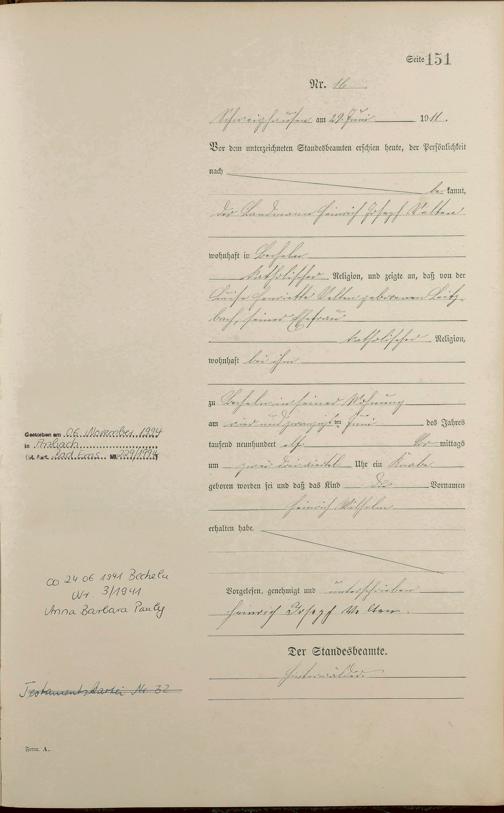 Seite 151
Nr. 16
Schweighausen am 29. Juni 1911.
Vor dem unterzeichneten Standesbeamten erschien heute, der Persönlichkeit
nach
be kannt,
der Landmann Heinrich Joseph Velten
wohnhaft in Becheln
katholischer Religion, und zeigte an, daß von der
Luise Henriette Velten geborenen
seiner Ehefrau
katholischer Religion,
wohnhaft bei ihm
zu Becheln in seiner Wohnung
am vier und zwanzigsten Juni des Jahres
tausend neunhundert elf Vor mittags
um zwei dreiviertel Uhr ein Knabe
geboren worden sei und daß das Kind die Vornamen
Heinrich Wilhelm
erhalten habe.
Vorgelesen, genehmigt und unterschrieben
Heinrich Joseph Velten.
Der Standesbeamte.
Gestorben am 06. November 1994
in
Bad Ems 229/1994
∞ 24 06 1941 Becheln
Nr. 3/1941
Anna Barbara Pauly
Testaments Kartei Nr 32
Form. A.